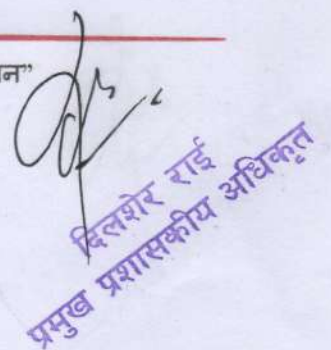 न”
दिलशेर राई
प्रमुख प्रशासकीय अधिकृत